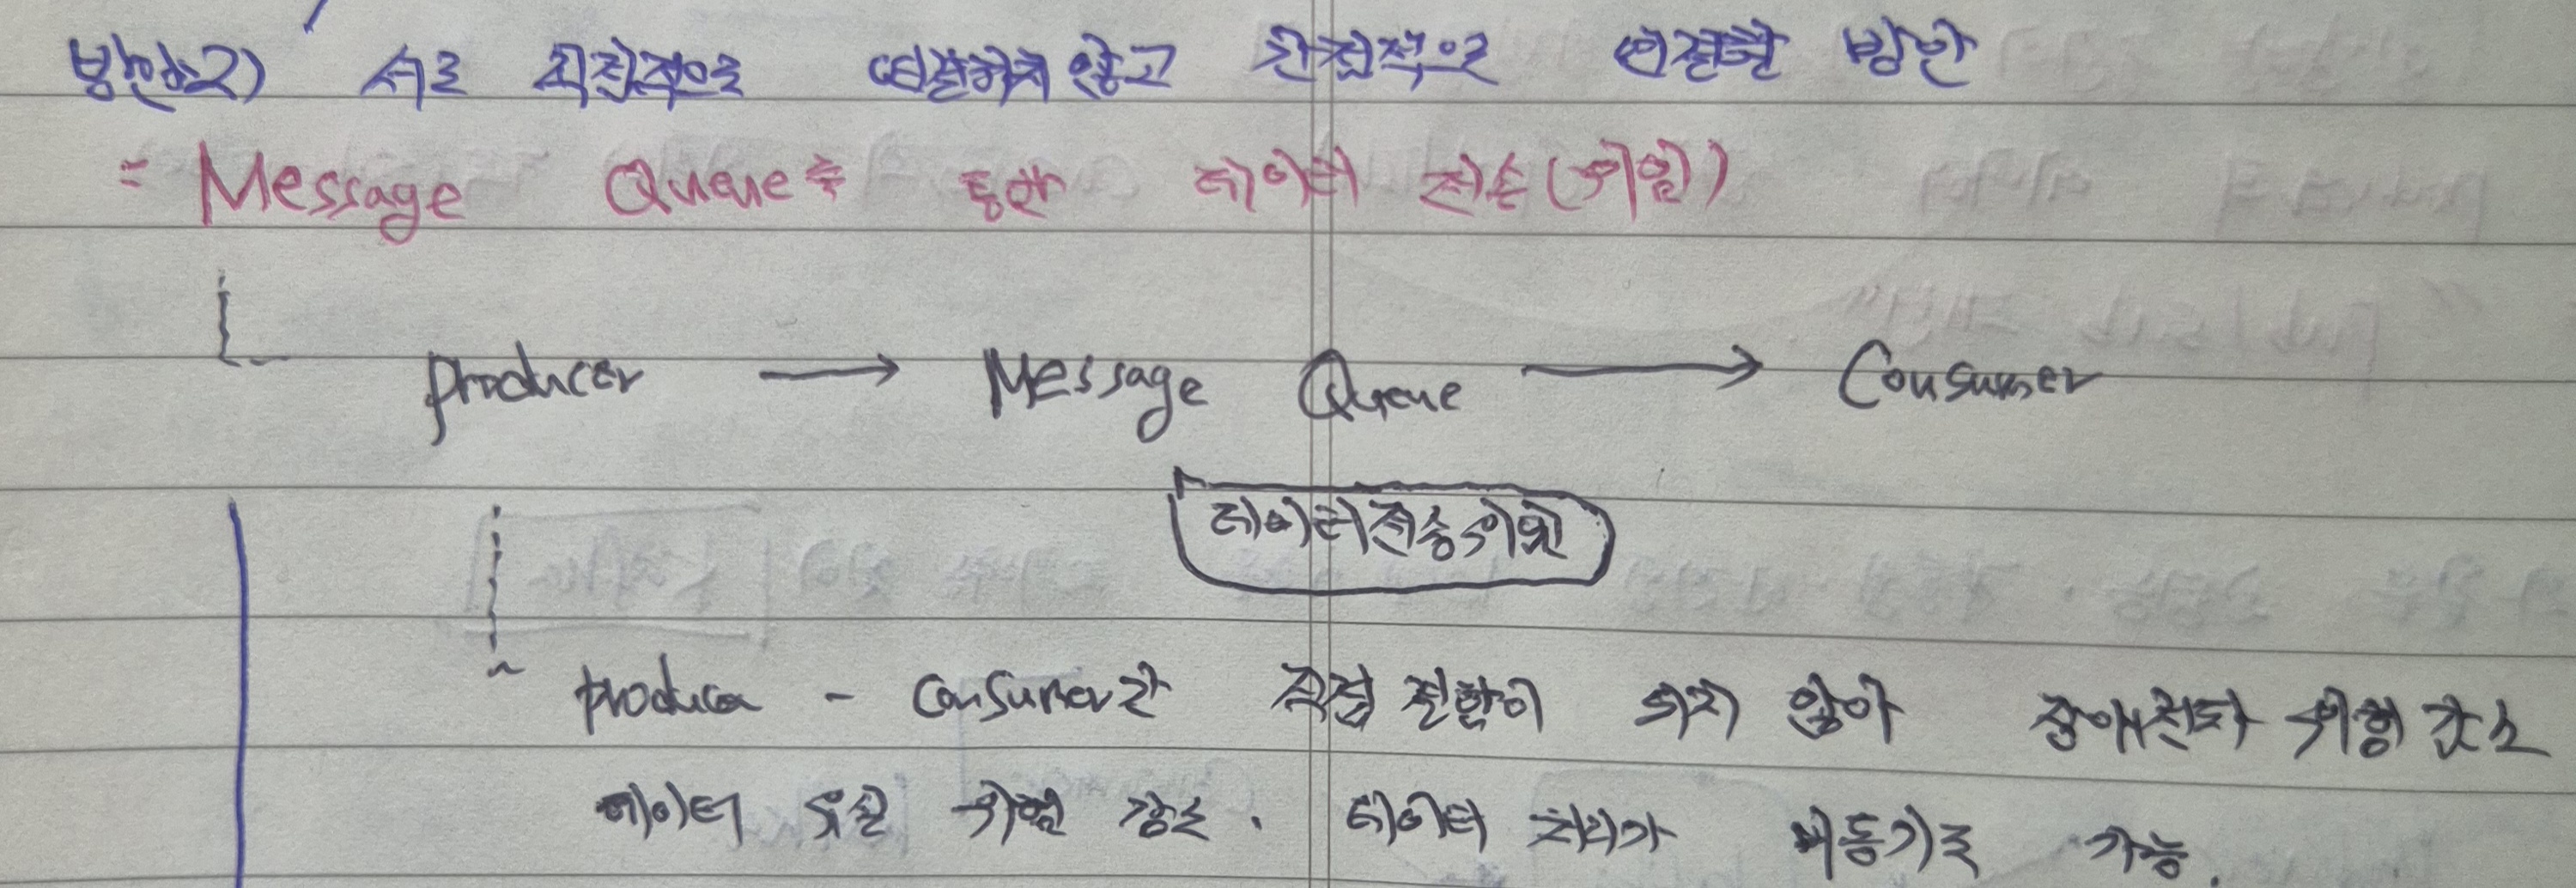 방안2) 서로 직접적으로 연결하지 않고 간접적으로 연결할 방안
= Message Queue를 통한 데이터 전송(위임)
producer → Message Queue → Consumer
데이터전송위임
producer - Consumer간 직접 전환이 되지 않아 장애전파 위험 감소
데이터 유실 위험 감소. 데이터 처리가 비동기로 가능.